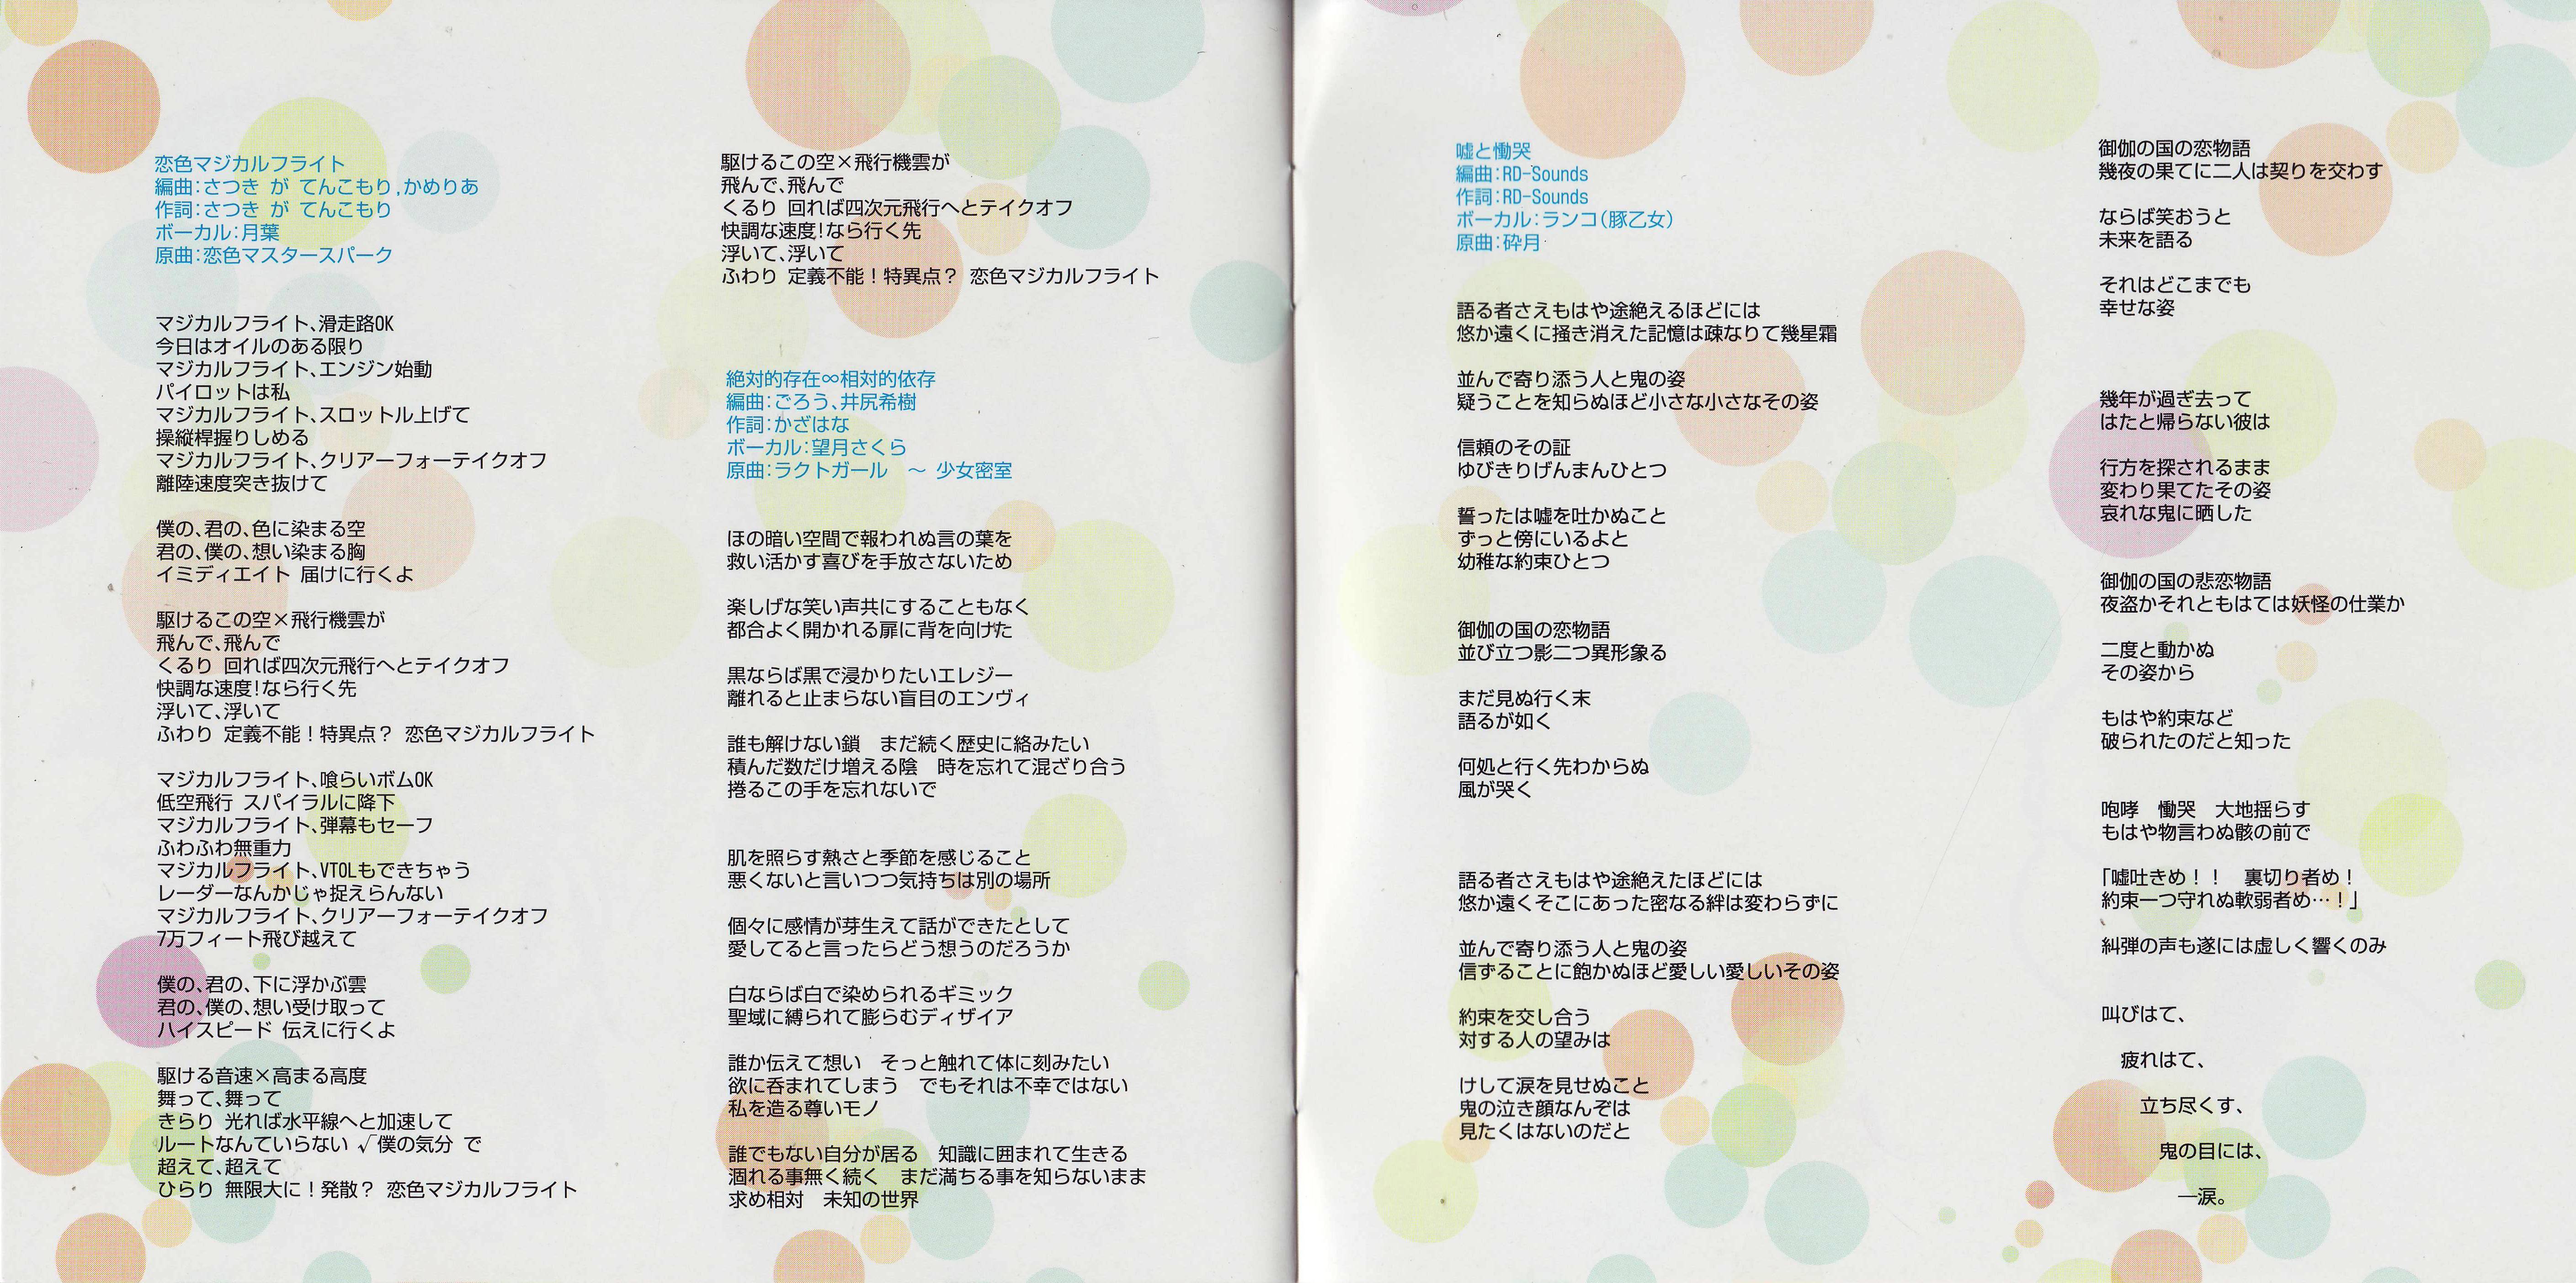 恋色マジカルフライト
編曲：さつき が てんこもり,かめりあ
作詞：さつき が てんこもり
ボーカル：月葉
原曲：恋色マスタースパーク
マジカルフライト、滑走路OK
今日はオイルのある限り
マジカルフライト、エンジン始動
パイロットは私
マジカルフライト、スロットル上げて
操縦桿握りしめる
マジカルフライト、クリアーフォーテイクオフ
離陸速度突き抜けて
僕の、君の、色に染まる空
君の、僕の、想い染まる胸
イミディエイト 届けに行くよ
駆けるこの空×飛行機雲が
飛んで、飛んで
くるり 回れば四次元飛行へとテイクオフ
快調な速度！なら行く先
浮いて、浮いて
ふわり 定義不能！特異点？ 恋色マジカルフライト
マジカルフライト、喰らいボムOK
低空飛行 スパイラルに降下
マジカルフライト、弾幕もセーフ
ふわふわ無重力
マジカルフライト、VTOLもできちゃう
レーダーなんかじゃ捉えらんない
マジカルフライト、クリアーフォーテイクオフ
7万フィート飛び越えて
僕の、君の、下に浮かぶ雲
君の、僕の、想い受け取って
ハイスピード 伝えに行くよ
駆ける音速×高まる高度
舞って、舞って
きらり 光れば水平線へと加速して
ルートなんていらない √僕の気分 で
超えて、超えて
ひらり 無限大に！発散？ 恋色マジカルフライト
駆けるこの空×飛行機雲が
飛んで、飛んで
くるり 回れば四次元飛行へとテイクオフ
快調な速度！なら行く先
浮いて、浮いて
ふわり 定義不能！特異点？ 恋色マジカルフライト
絶対的存在∞相対的依存
編曲：ごろう、井尻希樹
作詞：かざはな
ボーカル：望月さくら
原曲：ラクトガール　～ 少女密室
ほの暗い空間で報われぬ言の葉を
救い活かす喜びを手放さないため
楽しげな笑い声共にすることもなく
都合よく開かれる扉に背を向けた
黒ならば黒で浸かりたいエレジー
離れると止まらない盲目のエンヴィ
誰も解けない鎖　まだ続く歴史に絡みたい
積んだ数だけ増える陰　時を忘れて混ざり合う
捲るこの手を忘れないで
肌を照らす熱さと季節を感じること
悪くないと言いつつ気持ちは別の場所
個々に感情が芽生えて話ができたとして
愛してると言ったらどう想うのだろうか
白ならば白で染められるギミック
聖域に縛られて膨らむディザイア
誰か伝えて想い　そっと触れて体に刻みたい
欲に呑まれてしまう　でもそれは不幸ではない
私を造る尊いモノ
誰でもない自分が居る　知識に囲まれて生きる
涸れる事無く続く　まだ満ちる事を知らないまま
求め相対　未知の世界
嘘と慟哭
編曲：RD-Sounds
作詞：RD-Sounds
ボーカル：ランコ（豚乙女）
原曲：砕月
語る者さえもはや途絶えるほどには
悠か遠くに掻き消えた記憶は疎なりて幾星霜
並んで寄り添う人と鬼の姿
疑うことを知らぬほど小さな小さなその姿
信頼のその証
ゆびきりげんまんひとつ
誓ったは嘘を吐かぬこと
ずっと傍にいるよと
幼稚な約束ひとつ
御伽の国の恋物語
並び立つ影二つ異形象る
まだ見ぬ行く末
語るが如く
何処と行く先わからぬ
風が哭く
語る者さえもはや途絶えたほどには
悠か遠くそこにあった密なる絆は変わらずに
並んで寄り添う人と鬼の姿
信ずることに飽かぬほど愛しい愛しいその姿
約束を交し合う
対する人の望みは
けして涙を見せぬこと
鬼の泣き顔なんぞは
見たくはないのだと
御伽の国の恋物語
幾夜の果てに二人は契りを交わす
ならば笑おうと
未来を語る
それはどこまでも
幸せな姿
幾年が過ぎ去って
はたと帰らない彼は
行方を探されるまま
変わり果てたその姿
哀れな鬼に晒した
御伽の国の悲恋物語
夜盗かそれともはては妖怪の仕業か
二度と動かぬ
その姿から
もはや約束など
破られたのだと知った
咆哮　慟哭　大地揺らす
もはや物言わぬ骸の前で
「嘘吐きめ！！　裏切り者め！
約束一つ守れぬ軟弱者め…！」
糾弾の声も遂には虚しく響くのみ
叫びはて、
疲れはて、
立ち尽くす、
鬼の目には、
―涙。